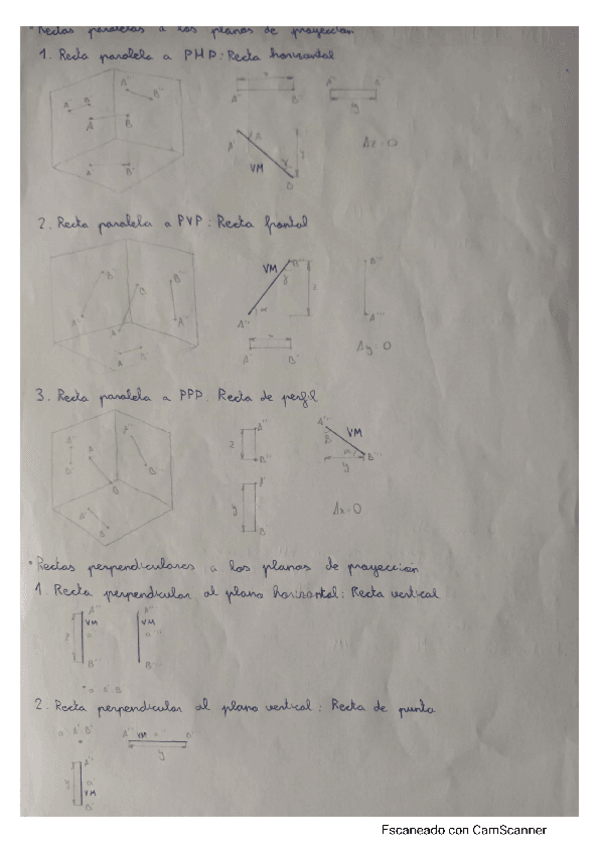 • Rectas paralelas a los planos de proyección
1. Recta paralela a PHP: Recta horizontal
A'' B''
VM
Δz=0
2. Recta paralela a PVP: Recta frontal
VM B''
A''
A' B'
B'''
A'''
Δy=0
3. Recta paralela a PPP. Recta de perfil
A''
B''
A'''
VM
B'''
y
Δx=0
• Rectas perpendiculares a los planos de proyección
1. Recta perpendicular al plano horizontal: Recta vertical
A'' A'''
VM VM
B'' B'''
2. Recta perpendicular al plano vertical: Recta de punta
A'' B''
A''' VM
y
A'
VM
B'
Escaneado con CamScanner